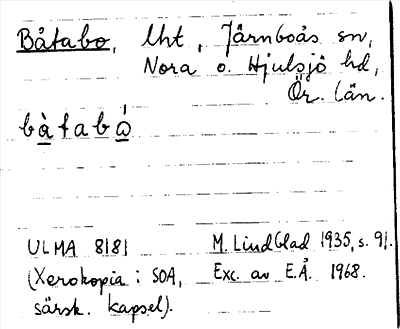 Båtabo, lht, Järnboås sn,
Nora o. Hjulsjö hd,
Ör. län.
bàtabǻ
ULMA 8181 M. Lindblad 1935, s. 91.
(Xerokopia: SOA, Exc. av E.Å. 1968.
särsk. kapsel).